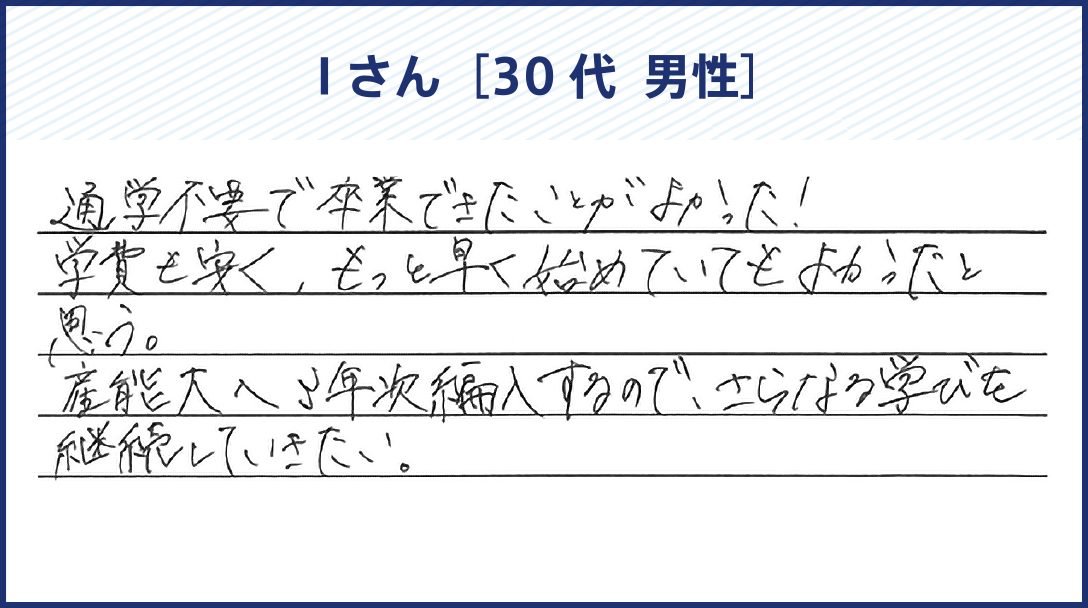 Iさん［30代 男性］
通学不要で卒業できたことがよかった！
学費も安く、もっと早く始めていてもよかったと
思う。
産能大へ3年次編入するので、さらなる学びを
継続していきたい。